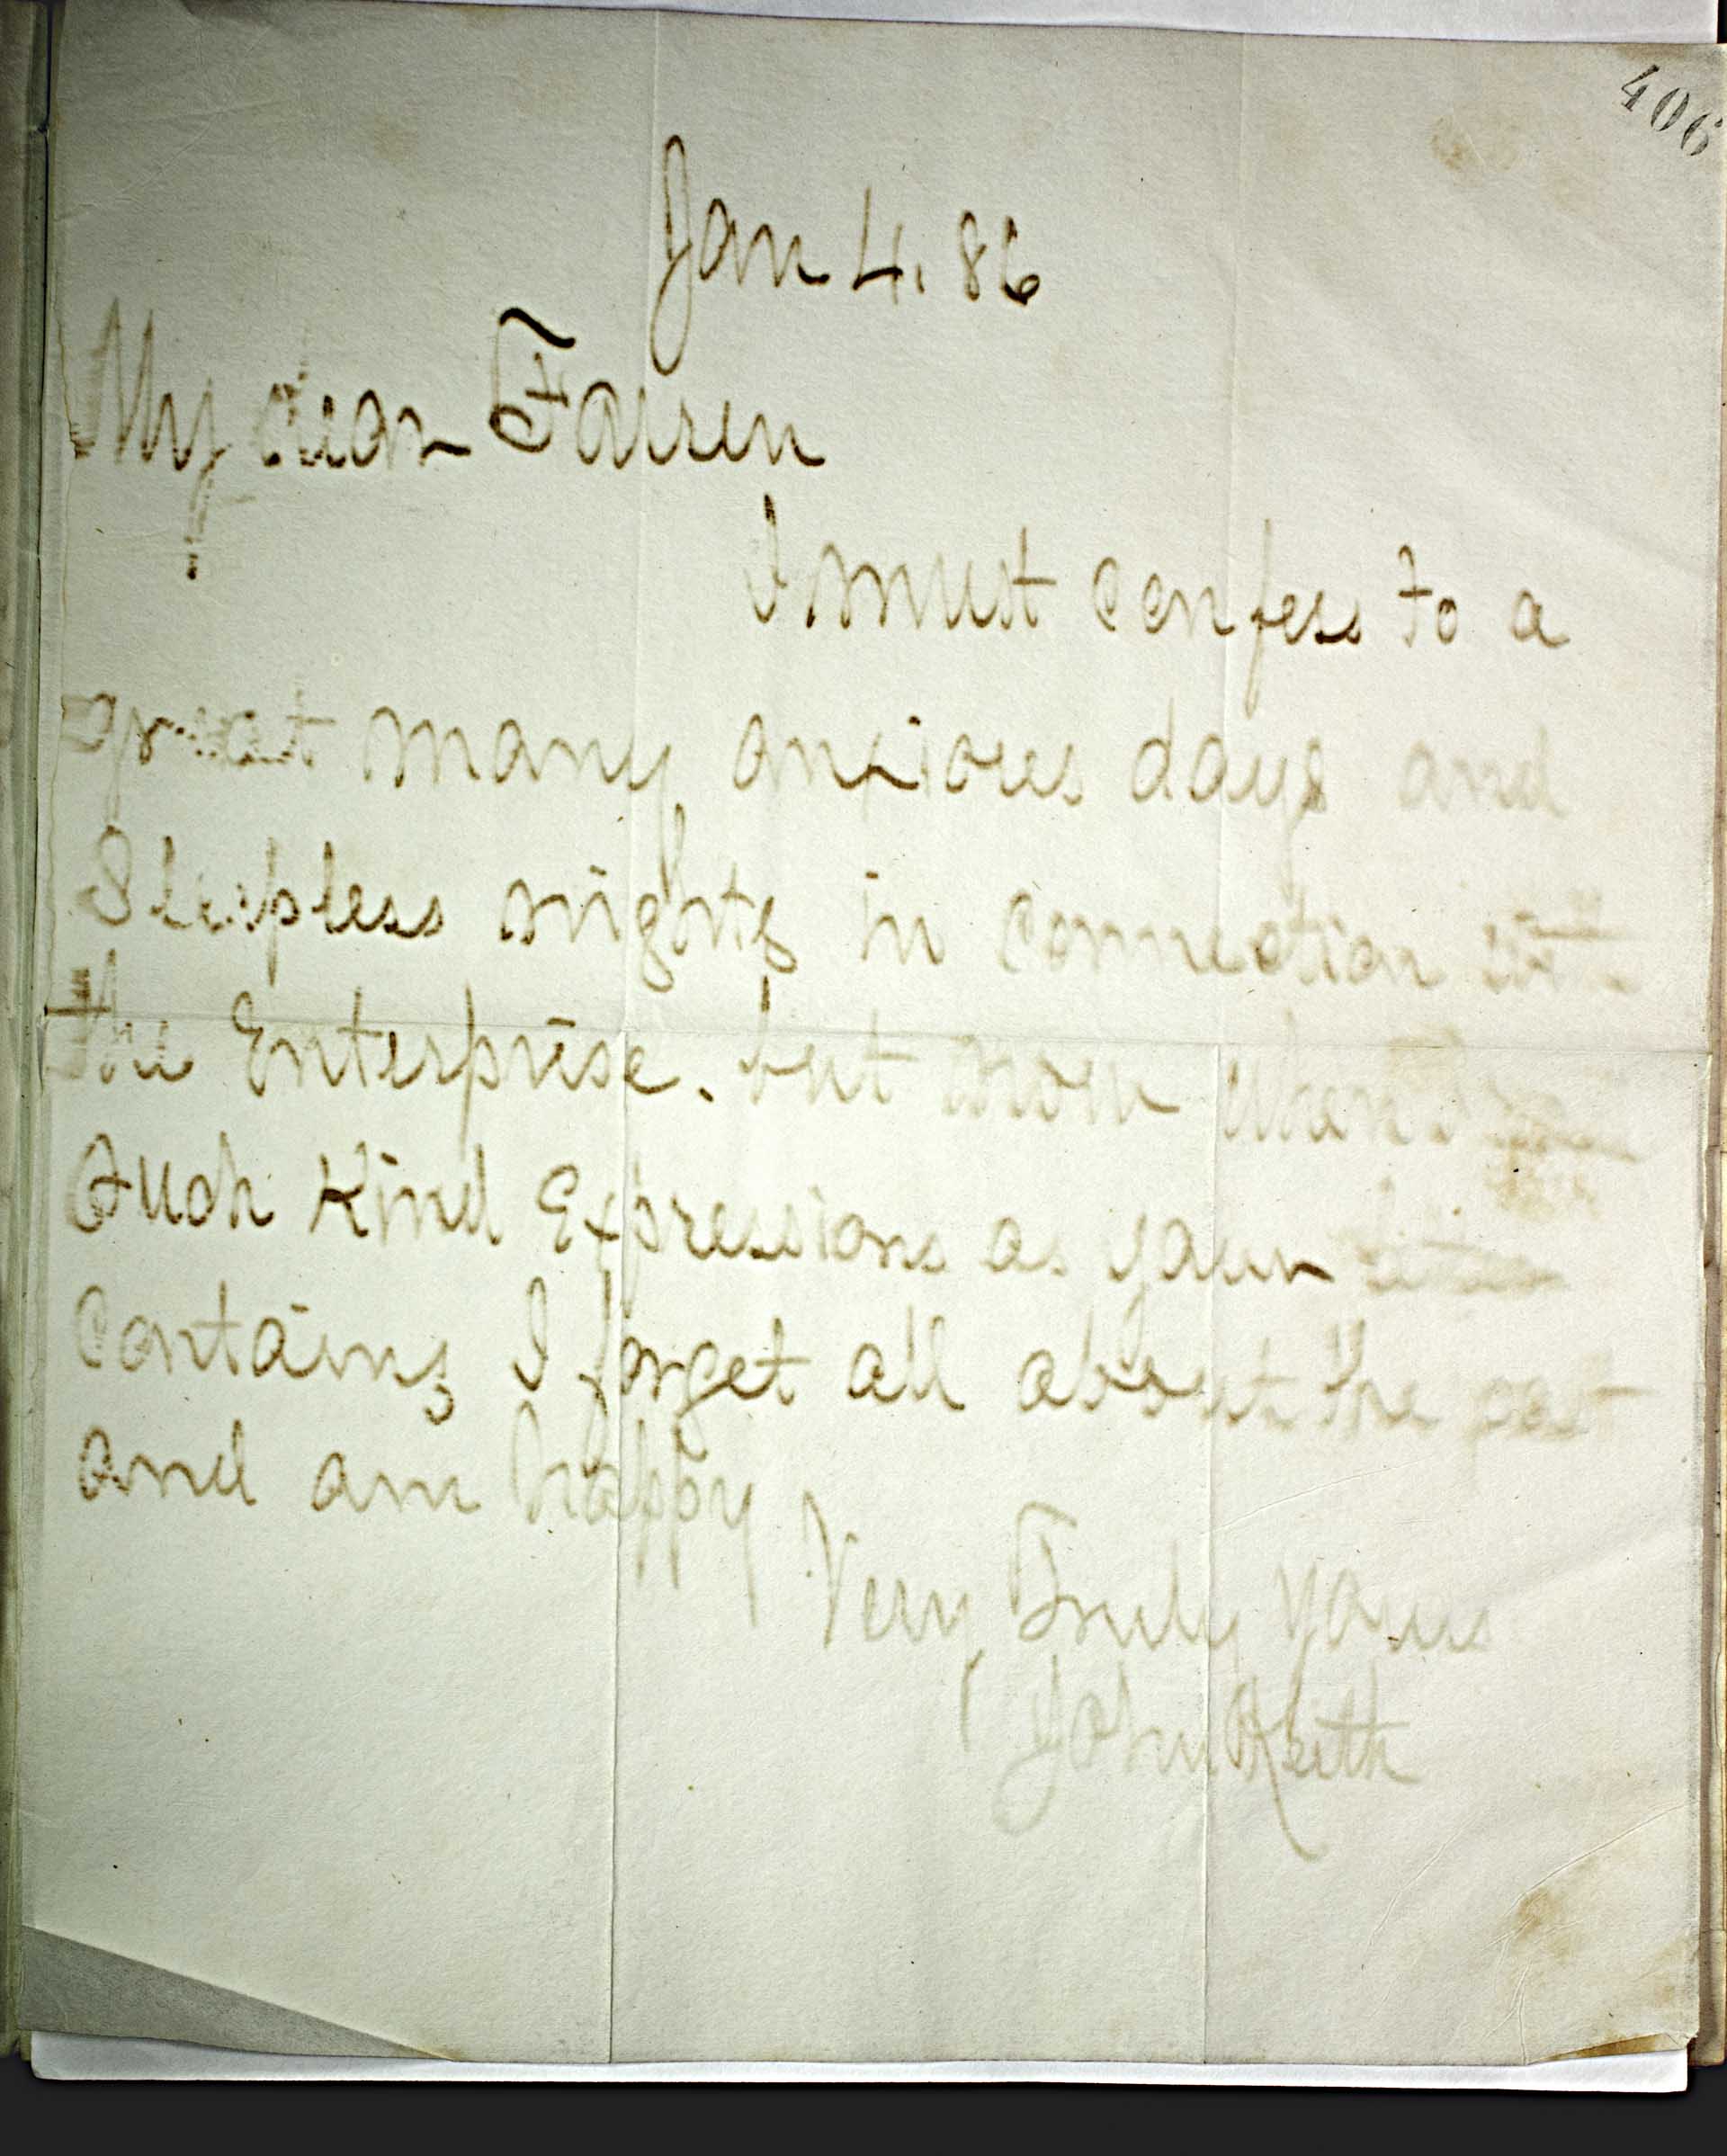 406
Jan 4. 86
My dear Farren
I must confess to a
great many anxious days and
Sleepless nights in connection with
the Enterprise. but now when I
Such Kind Expressions as your letter
Contains I forget all about the past
and am happy
Very Truly yours
John Keith